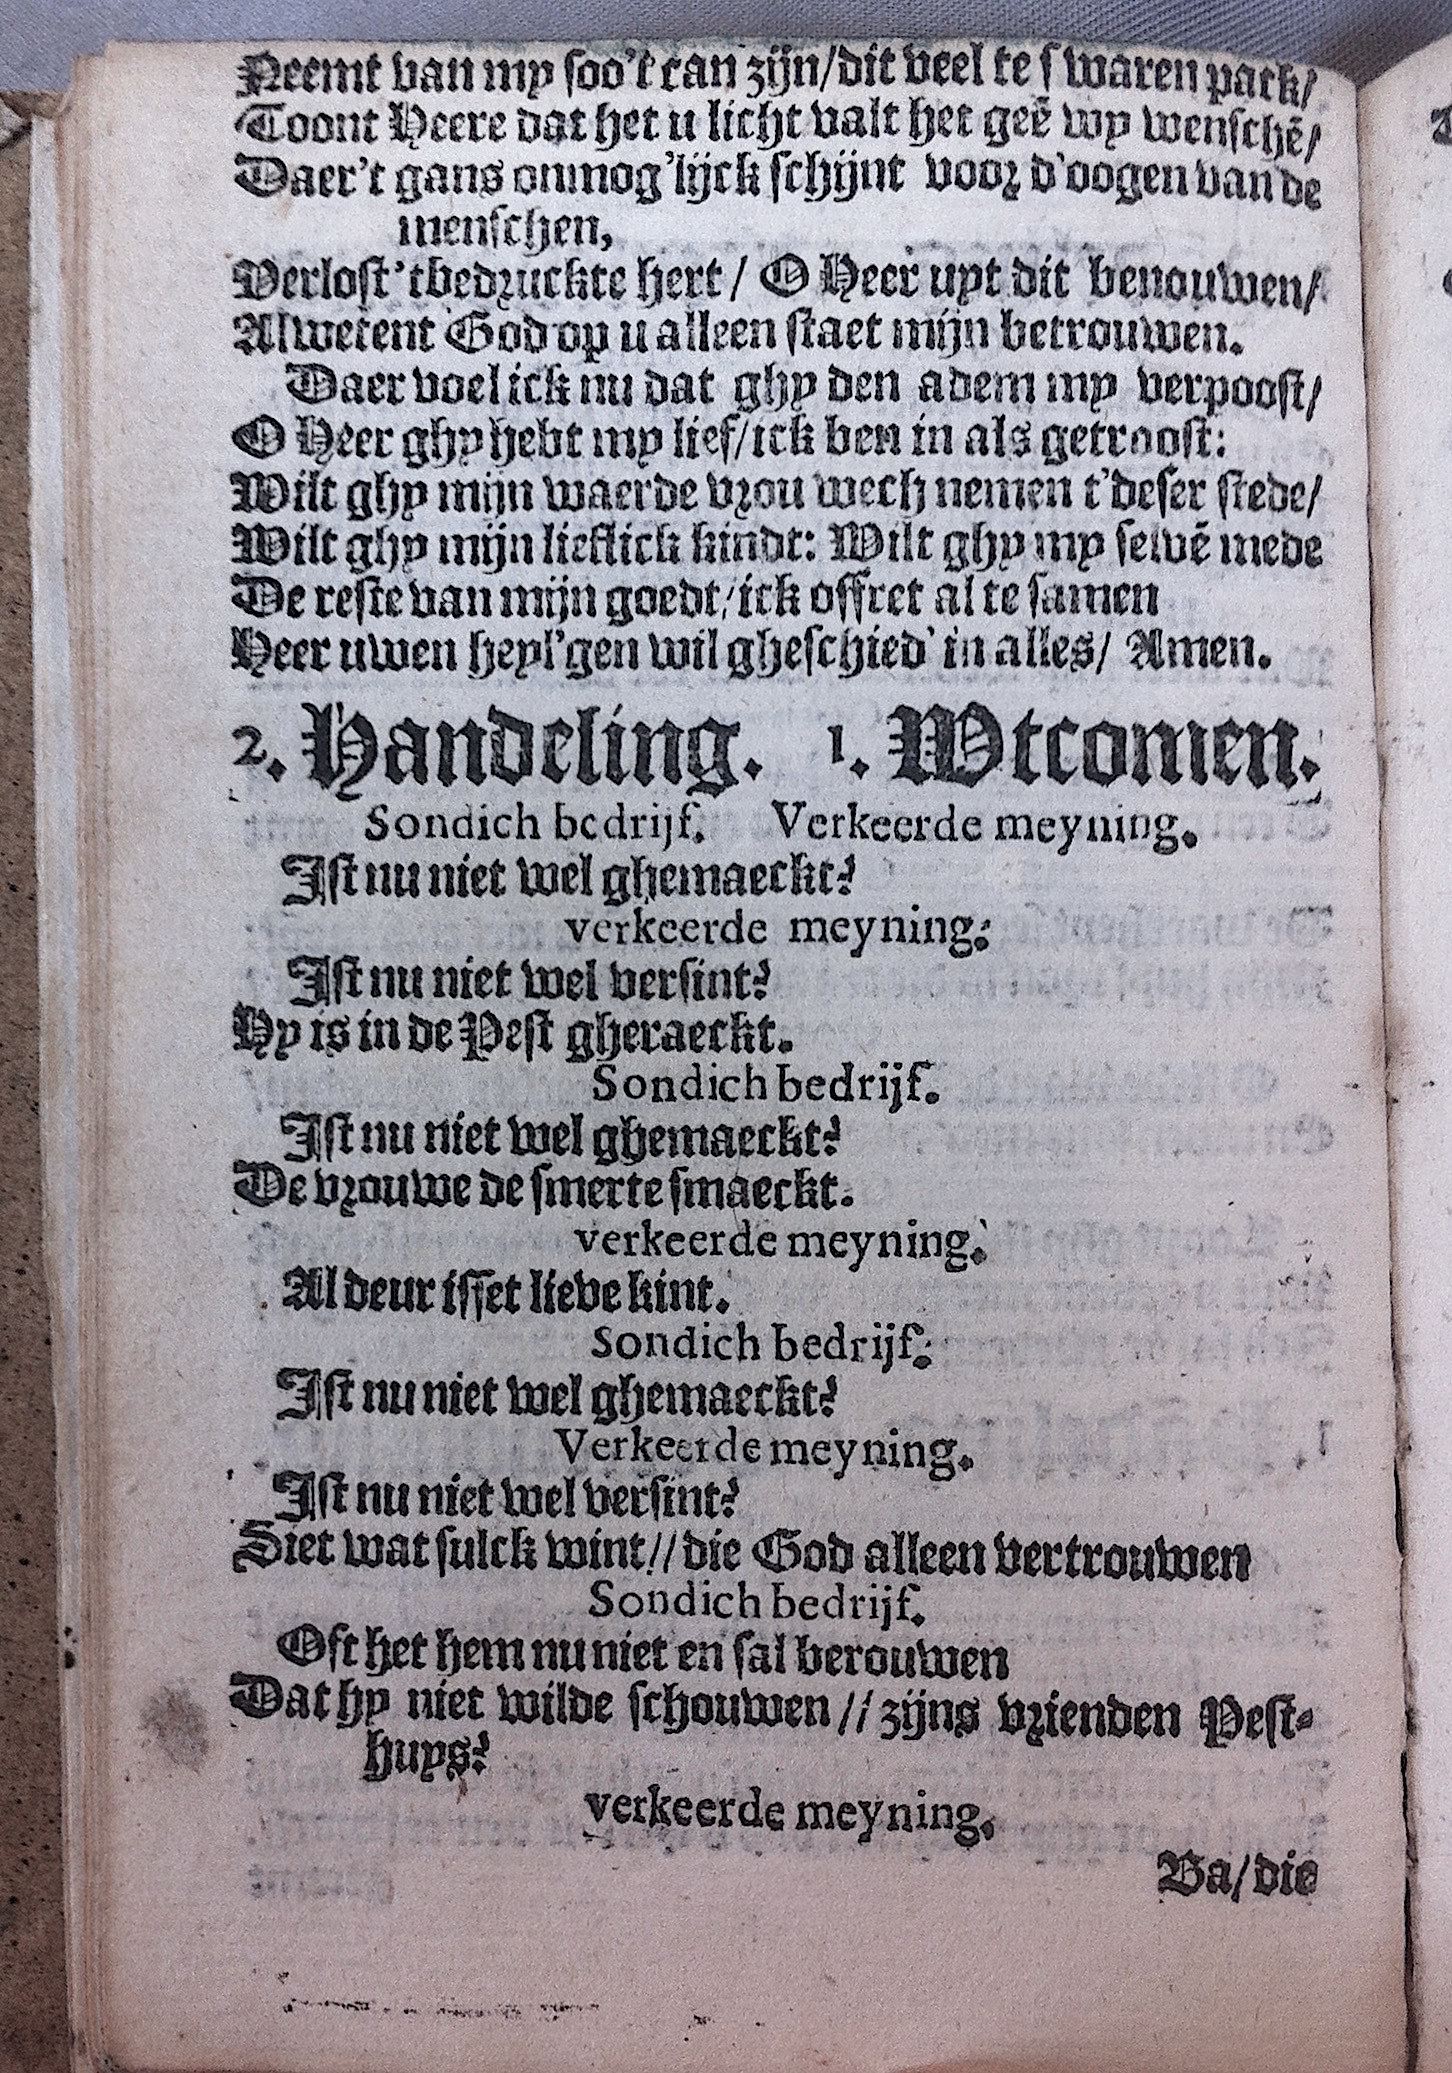 Neemt van my soo't can zijn/dit veel te swaren pack/
Toont Heere dat het u licht valt het geē wy wenschē/
Daer't gans onmog'lijck schijnt voor d'oogen van de
menschen,
Verlost 'tbedruckte hert/ O Heer uyt dit benouwen/
Alwetent God op u alleen staet mijn betrouwen.
Daer voel ick nu dat ghy den adem my verpoost/
O Heer ghy hebt my lief/ick ben in als getroost:
Wilt ghy mijn waerde vrou wech nemen t'deser stede/
Wilt ghy mijn lieflick kindt: Wilt ghy my selvē mede
De reste van mijn goedt/ick offret al te samen
Heer uwen heyl'gen wil gheschied' in alles/ Amen.
2. Handeling. 1. Wtcomen.
Sondich bedrijf. Verkeerde meyning.
Ist nu niet wel ghemaeckt?
verkeerde meyning.
Ist nu niet wel versint?
Hy is in de Pest gheraeckt.
Sondich bedrijf.
Ist nu niet wel ghemaeckt?
De vrouwe de smerte smaeckt.
verkeerde meyning.
Al deur isset lieve kint.
Sondich bedrijf.
Ist nu niet wel ghemaeckt?
Verkeerde meyning.
Ist nu niet wel versint?
Siet wat sulck wint// die God alleen vertrouwen
Sondich bedrijf.
Oft het hem nu niet en sal berouwen
Dat hy niet wilde schouwen// zijns vrienden Pest-
huys?
verkeerde meyning.
Ba/die